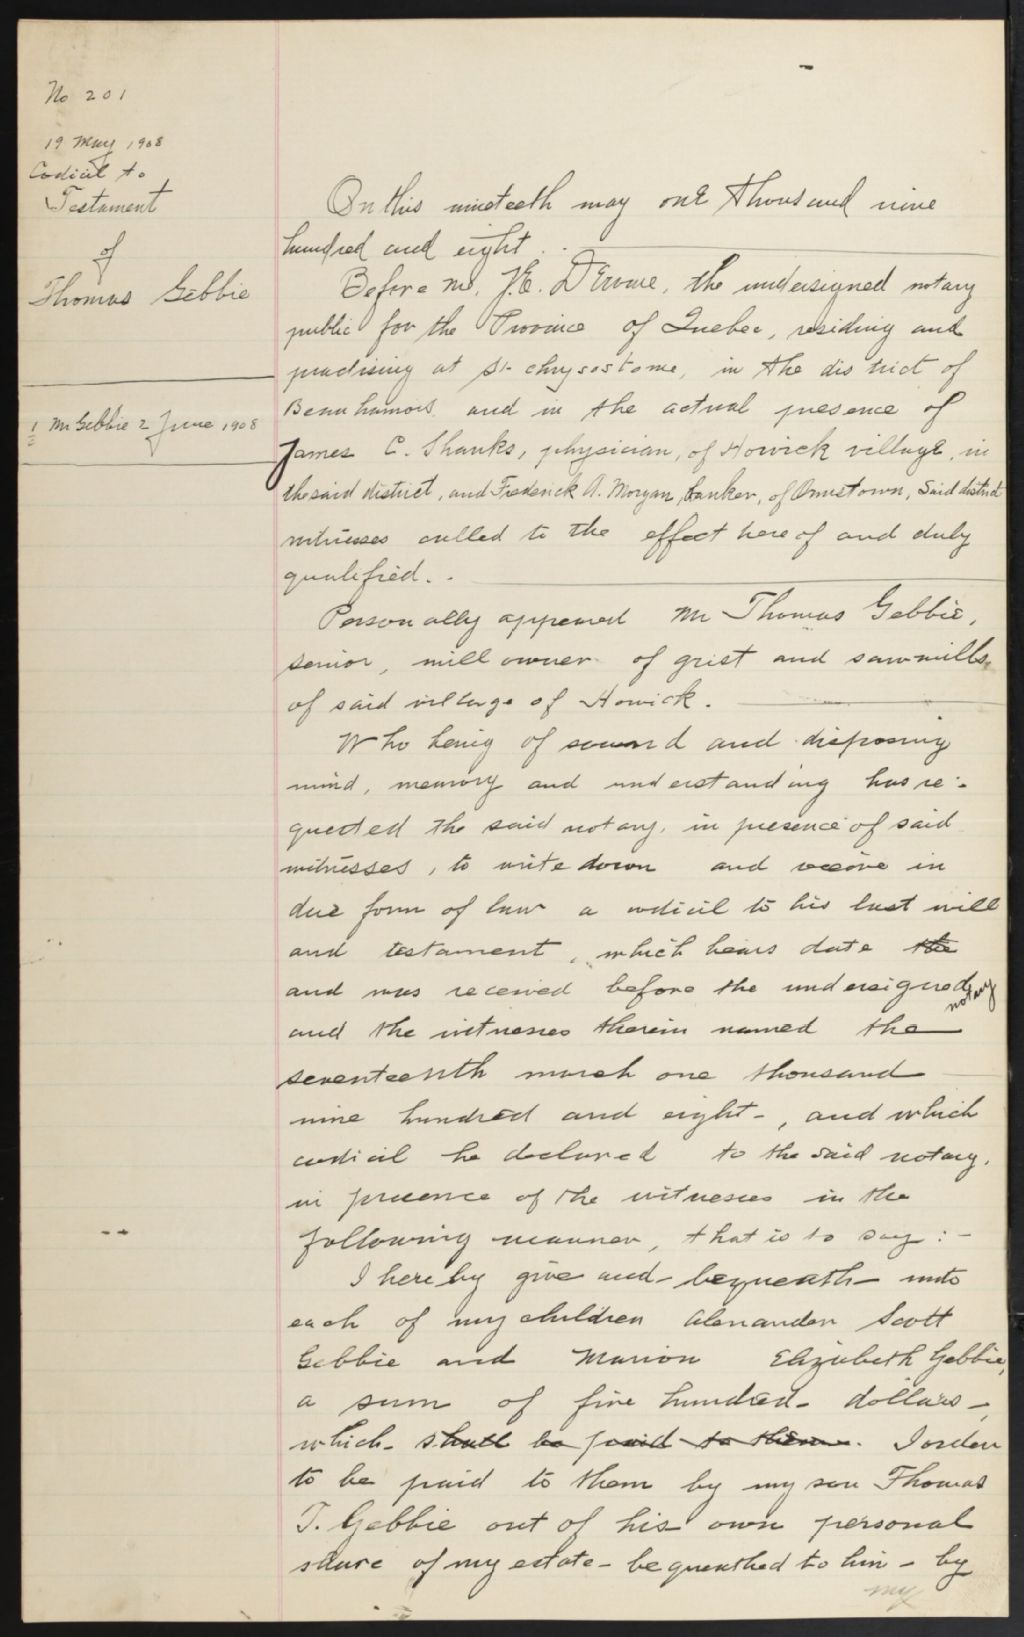 No 201
19 May 1908
Codicil to
Testament
of
Thomas Gebbie
1 Mr Gebbie 2 June 1908
On this nineteeth may one thousand nine
hundred and eight.
Before me, J.E. the undersigned notary
public for the Province of Quebec, residing and
practising at St. chrysostome, in the district of
Beauharnois, and in the actual presence of
James C. Shanks, physician, of Howick village, in
the said district, and Frederick A. Morgan, banker, of Ormstown, said district
witnesses called to the effect hereof and duly
qualified.
Personally appeared Mr Thomas Gebbie,
senior, mill owner of grist and sawmills,
of said village of Howick.
Who being of sound and disposing
mind, memory and understanding has re-
quested the said notary, in presence of said
witnesses, to write down and receive in
due form of law a codicil to his last will
and testament, which bears date the
and was received before the undersigned notary
and the witnesses therein named the
seventeenth march one thousand
nine hundred and eight -, and which
codicil he declared to the said notary,
in presence of the witnesses in the
following manner, that is to say : -
I hereby give and bequeath unto
each of my children Alexander Scott
Gebbie and Marion Elizabeth Gebbie,
a sum of five hundred dollars -,
which shall be paid to them. I order
to be paid to them by my son Thomas
T. Gebbie out of his own personal
share of my estate - bequeathed to him - by
my